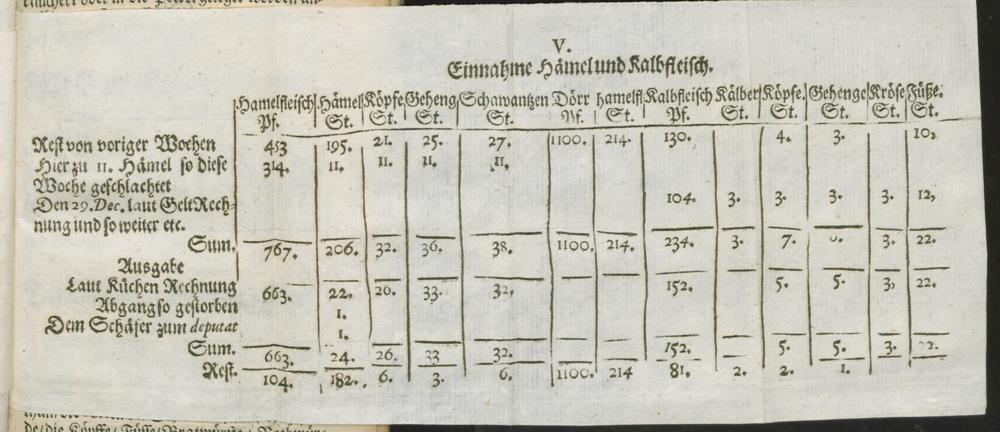 V.
Einnahme Hämel und Kalbfleisch.
Hamelfleisch Hämel Köpfe Geheng Schawantzen Dörr hamelfl Kalbfleisch Kälber Köpfe. Gehenge Kröse Füße.
Pf. St. St. St. St. Pf. St. Pf. St. St. St. St. St.
Rest von voriger Wochen 453 195. 21. 25. 27. 1100. 214. 130. 4. 3. 10,
Hier zu 11. Hämel so diese 314. 11. 11. 11. 11.
Woche geschlachtet
Den 29. Dec. laut Gelt Rech- 104. 3. 3. 3. 3. 12,
nung und so weiter etc.
Sum. 767. 206. 32. 36. 38. 1100. 214. 234. 3. 7. 3. 22.
Ausgabe
Laut Küchen Rechnung 663. 22. 26. 33. 32. 152. 5. 5. 3. 22.
Abgang so gestorben 1.
Dem Schäfer zum deputat 1.
Sum. 663. 24. 26. 33 32. 152. 5. 5. 3. 22.
Rest. 104. 182. 6. 3. 6. 1100. 214 81. 2. 2. 1.